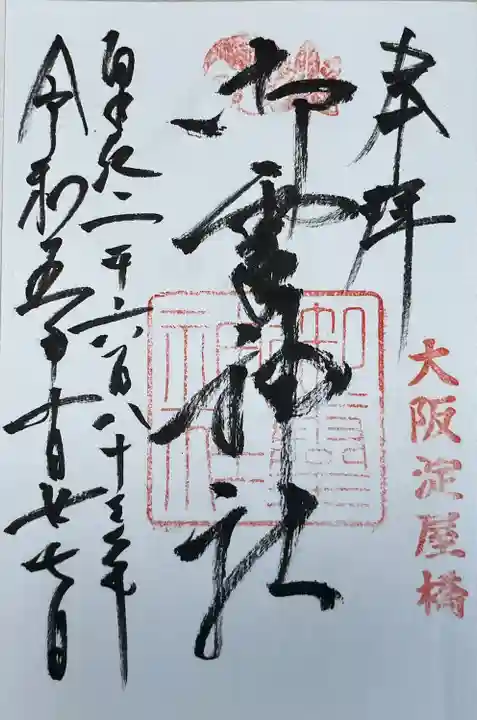 奉拝
大阪淀屋橋
御霊神社
皇紀二千六百八十三年
令和五年十月廿七日